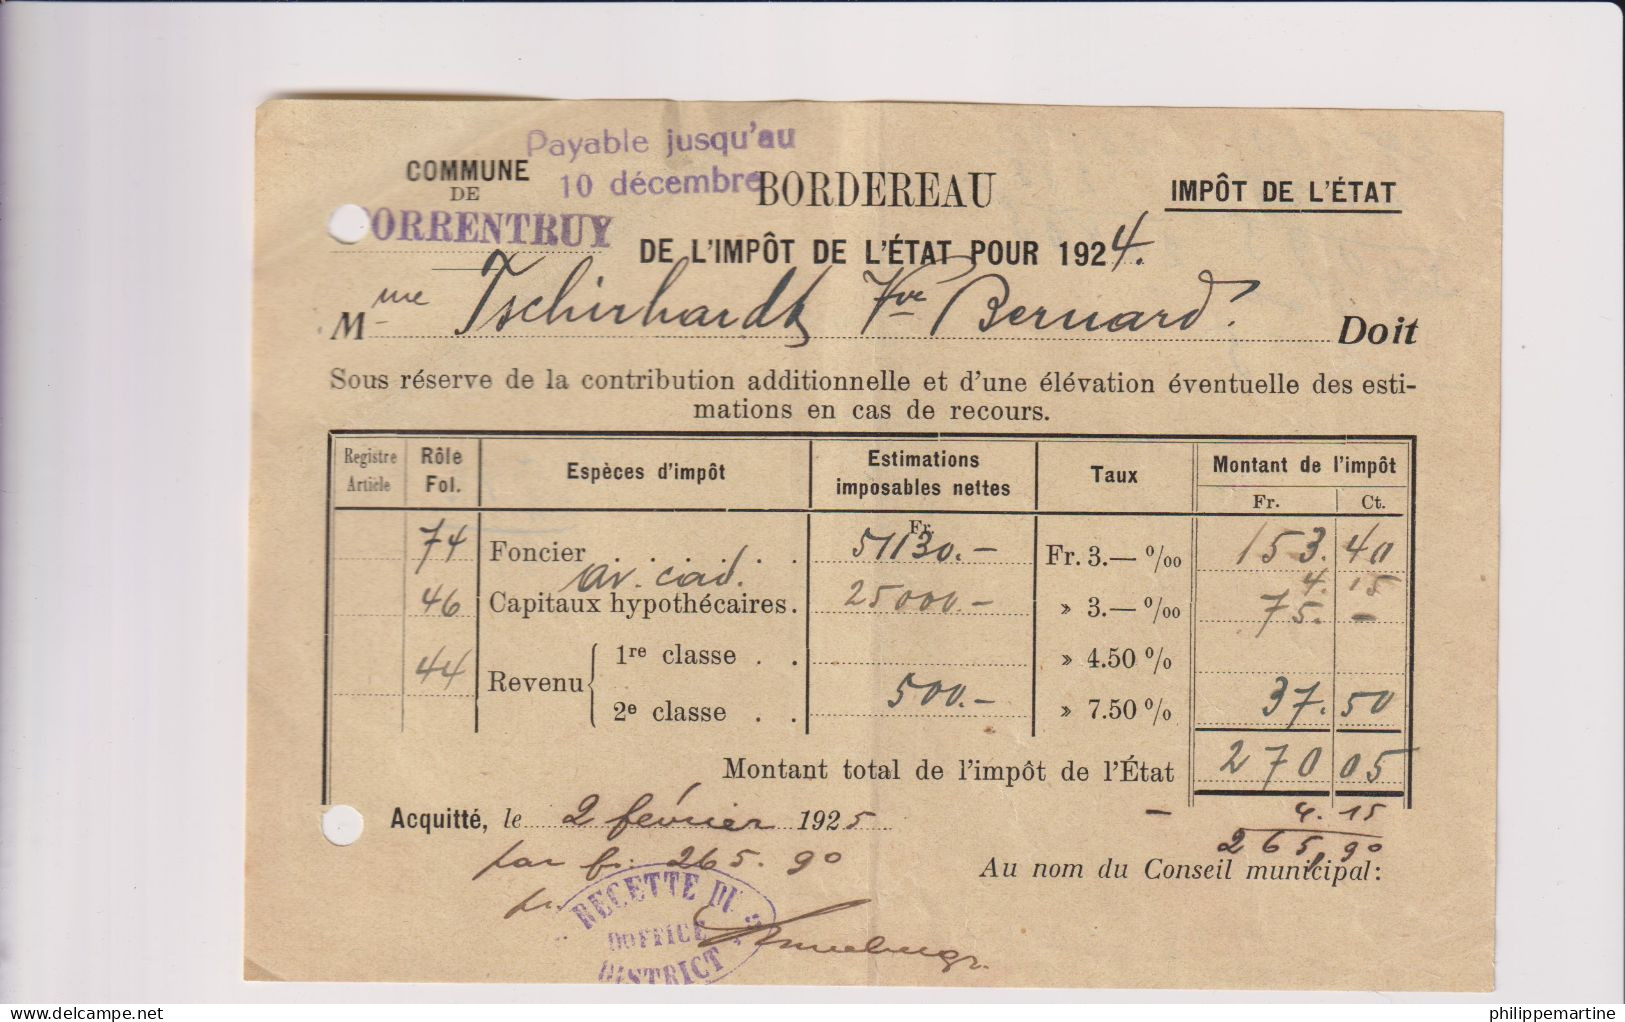 Payable jusqu'au
10 décembre
COMMUNE
DE
PORRENTRUY
BORDEREAU
IMPÔT DE L'ÉTAT
DE L'IMPÔT DE L'ÉTAT POUR 1924.
Mme Tschirhardt Vve Bernard. Doit
Sous réserve de la contribution additionnelle et d'une élévation éventuelle des esti-
mations en cas de recours.
Registre Article Rôle Fol. Espèces d'impôt Estimations imposables nettes Taux Montant de l'impôt
Fr. Ct.
Fr.
74 Foncier . . . . . 51130.- Fr. 3.— ‰ 153. 40
av. cad. 4. 15
46 Capitaux hypothécaires . 25000.- » 3.— ‰ 75. -
44 Revenu { 1re classe . . » 4.50 %
2e classe . . 500.- » 7.50 % 37. 50
Montant total de l'impôt de l'État 270 05
- 4. 15
265,90
Acquitté, le 2 février 1925
par fr. 265.90
Au nom du Conseil municipal:
pr.
RECETTE DU
DISTRICT
delcampe.net
philippemartine